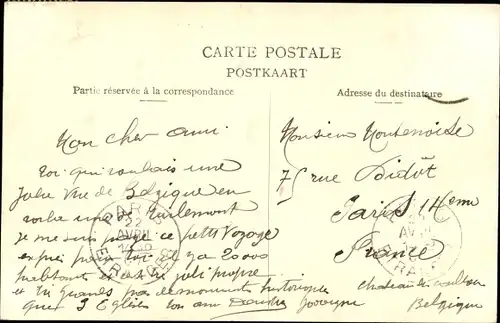 CARTE POSTALE
POSTKAART
Partie réservée à la correspondance
Adresse du destinataire
Mon cher ami
toi qui voulais une
Jolie Vue de Belgique en
voila une de Tirlemont
je me suis payé ce petit Voyage
exprès pour toi il y a 20000
habitants et c'est joli propre
et très grands pas de monuments historique
que 3 Eglises ton ami
Monsieur Montenoise
75 rue Didôt
Paris 14eme
France
Belgique
PARIS
22
AVRIL